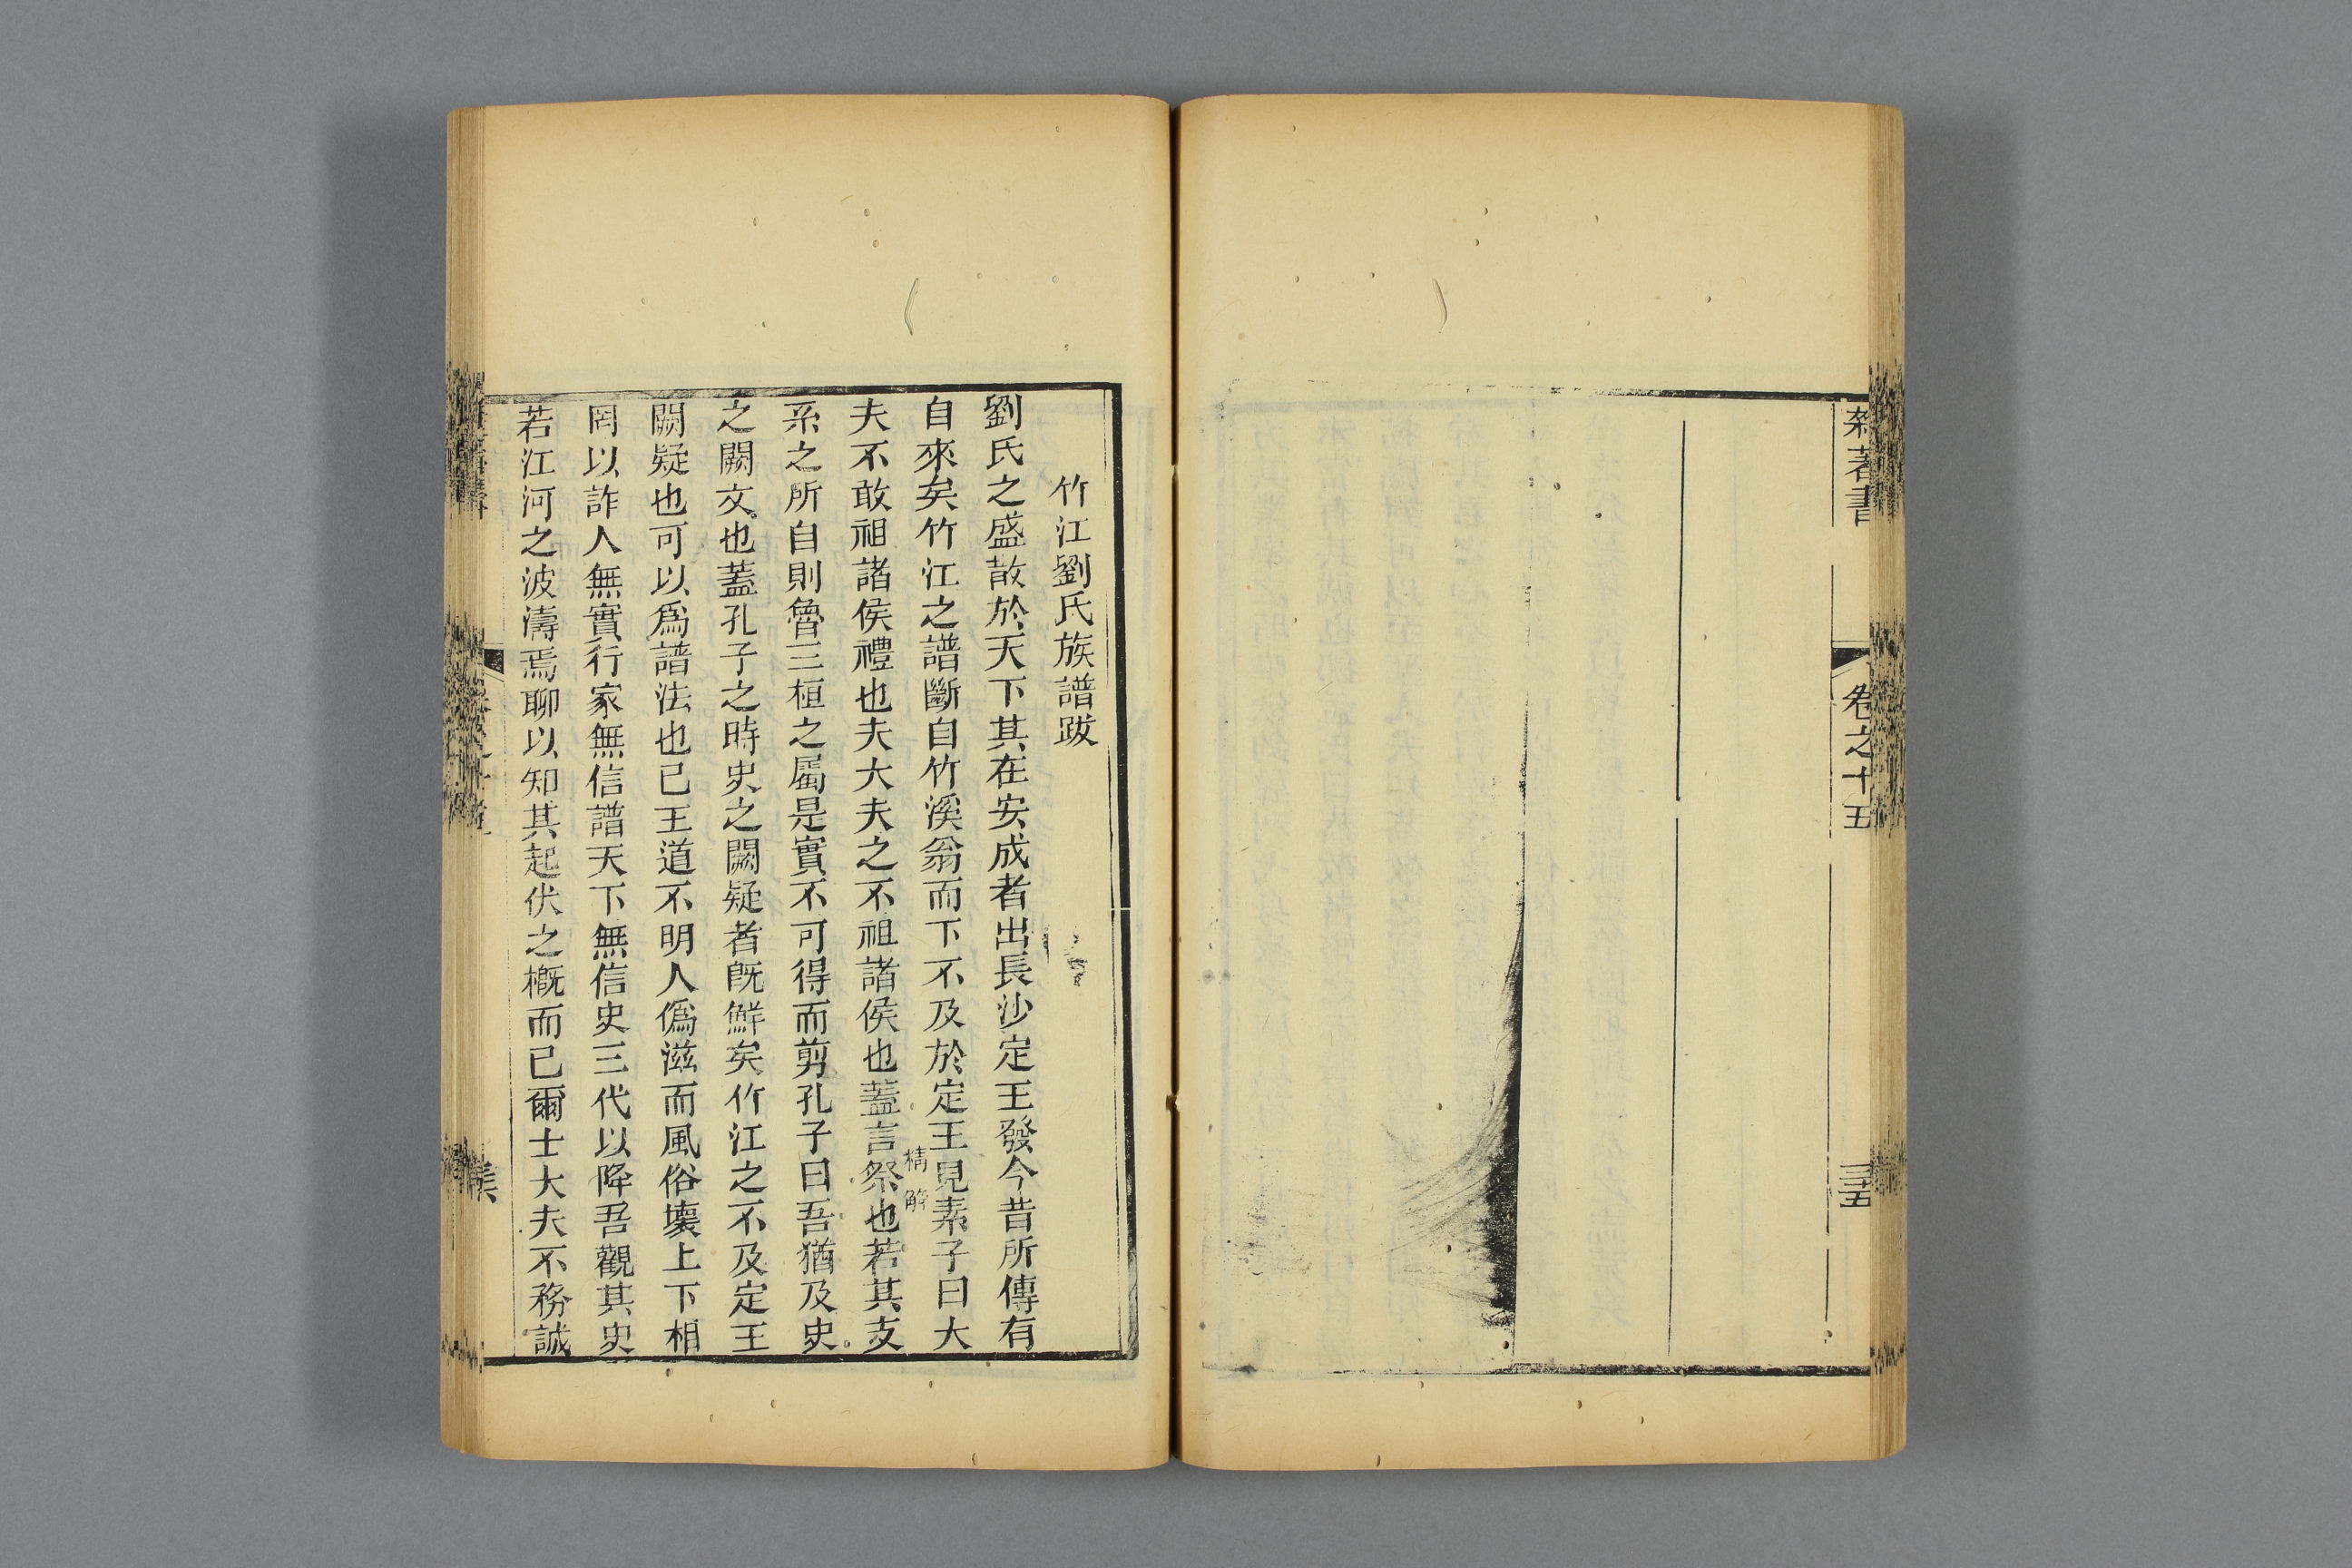 雜著書
卷之十五
三十五
竹江劉氏族譜跋
劉氏之盛散於天下其在安成者出長沙定王發今昔所傳有
自來矣竹江之譜斷自竹溪翁而下不及於定王見素子曰大
夫不敢祖諸侯禮也夫大夫之不祖諸侯也蓋言祭也若其支
系之所自則魯三桓之屬是實不可得而剪孔子曰吾猶及史
之闕文也蓋孔子之時史之闕疑者旣鮮矣竹江之不及定王
闕疑也可以爲譜法也已王道不明人僞滋而風俗壞上下相
罔以詐人無實行家無信譜天下無信史三代以降吾觀其史
若江河之波濤焉聊以知其起伏之槪而已爾士大夫不務誠